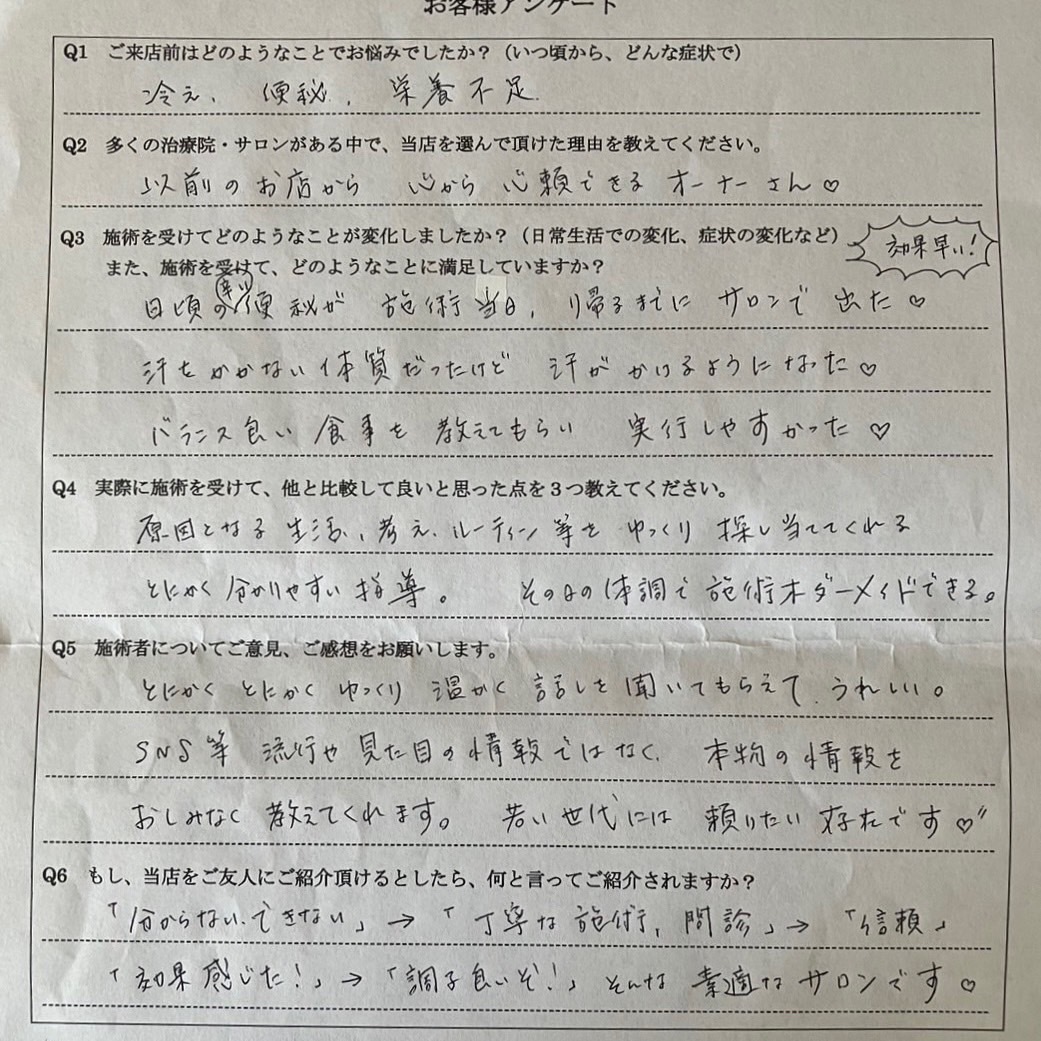 お客様アンケート
Q1 ご来店前はどのようなことでお悩みでしたか？（いつ頃から、どんな症状で）
冷え、便秘、栄養不足
Q2 多くの治療院・サロンがある中で、当店を選んで頂けた理由を教えてください。
以前のお店から 心から心頼できるオーナーさん♡
Q3 施術を受けてどのようなことが変化しましたか？（日常生活での変化、症状の変化など）
効果早い！
また、施術を受けて、どのようなことに満足していますか？
日頃の辛い便秘が 施術当日、帰るまでに サロンで出た♡
汗をかかない体質だったけど 汗がかけるようになった♡
バランス良い食事を 教えてもらい 実行しやすかった♡
Q4 実際に施術を受けて、他と比較して良いと思った点を３つ教えてください。
原因となる生活、考え、ルーティン等を ゆっくり探し当ててくれる
とにかく分かりやすい指導。 その日の体調で施術オーダーメイドできる。
Q5 施術者についてご意見、ご感想をお願いします。
とにかく とにかく ゆっくり 温かく 話しを聞いてもらえて、うれしい。
SNS等 流行や見た目の情報ではなく、本物の情報を
おしみなく教えてくれます。 若い世代には 頼りたい存在です♡〃
Q6 もし、当店をご友人にご紹介頂けるとしたら、何と言ってご紹介されますか？
「分からない、できない」→「丁寧な施術、問診」→「信頼」
「効果感じた！」→「調子良いぞ！」そんな 素適なサロンです♡